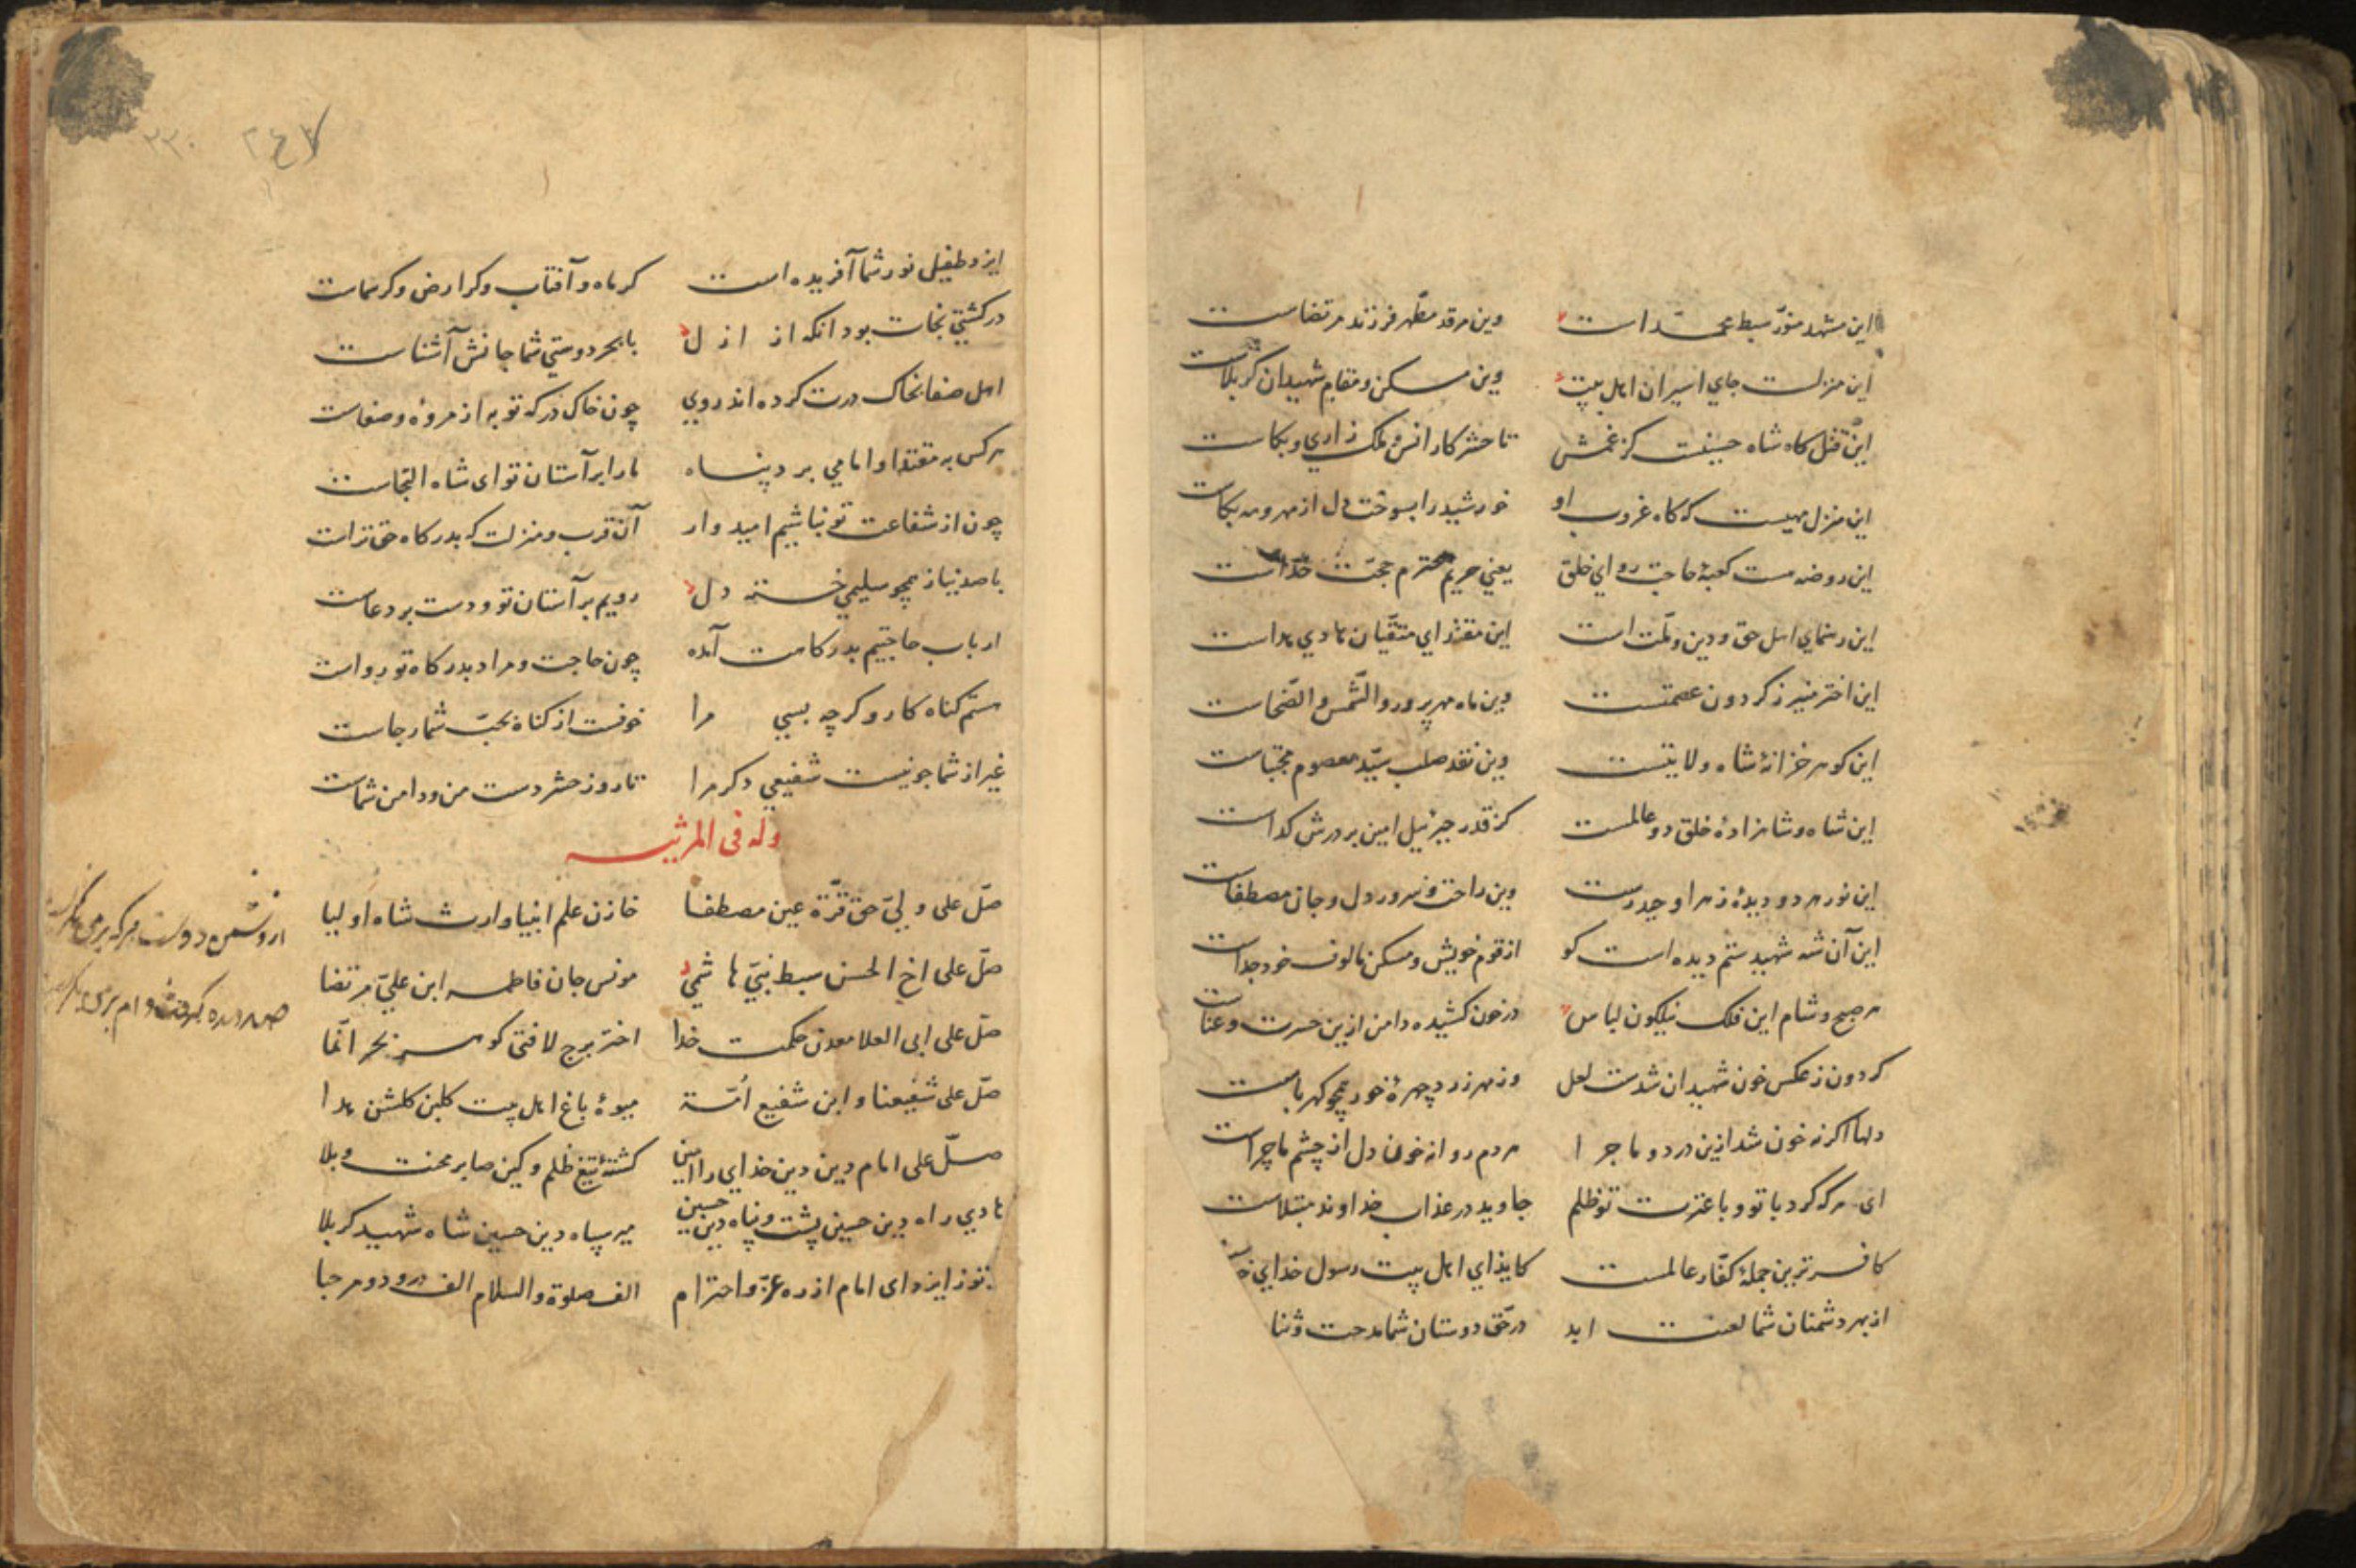 این مشهد منوّر سبط محمّد است وین مرقد مطّهر فرزند مرتضاست
این منزلست جای اسیران اهل بیت وین مسکن و مقام شهیدان کربلاست
این قتل کاه شاه حسینست کز غمش تا حشر کار انس و ملک زاری و بکاست
این منزل مهیست که کاه غروب او خورشید را بسوخت دل از مهر و مه بکاست
این روضه هست کعبهٔ حاجت روای خلق یعنی حریم محترم حجّت خداست
این رهنمای اهل حق و دین و ملّت است این مقتدای متقّیان هادی هداست
این اختر منیر ز کردون عصمتست وین ماه مهرپرور و الشّمس و الضّحاست
این کوهر خزانهٔ شاه ولایتست وین نقد صلب سیّد معصوم مجتباست
این شاه و شاهزادهٔ خلق دو عالمست کز قدر جبرئیل امین بر درش کداست
این نور هر دو دیدهٔ زهرا و حیدرست وین راحت و سرور دل و جان مصطفاست
این آن شه شهید ستم دیده است کو از قوم خویش و مسکن مالوف خود جداست
هر صبح و شام این فلک نیلکون لباس در خون کشیده دامن ازین حسرت و عناست
کردون ز عکس خون شهیدان شدست لعل وز مهر زرد چهرهٔ خور همچو کهرباست
دلها اکر نه خون شد ازین درد و ماجرا هر دم روانه خون دل از چشم ما چراست
ای هرکه کرد با تو و با عترت تو ظلم جاوید در عذاب خداوند مبتلاست
کافرترین جملهٔ کفّار عالمست کایذای اهل بیت رسول خدای
از بهر دشمنان شما لعنت ابد در حق دوستان شما مدحت و ثنا
ایزد طفیل نور شما آفریده است کر ماه و آفتاب و کر ارض و کر سماست
در کشتی نجات بود انکه از ازل با بحر دوستی شما جانش آشناست
اهل صفا بخاک درت کرده اند روی چون خاک درکه تو به از مروه و صفاست
هرکس به مقتدا و امامی برد پناه ما را بر آستان تو ای شاه التجاست
چون از شفاعت تو نباشیم امیدوار آن قرب و منزلت که بدرکاه حق تراست
با صد نیاز همچو سلیمی خسته دل رویم بر آستان تو و دست بر دعاست
ارباب حاجتیم بدرکاهت آمده چون حاجت و مراد بدرکاه تو رواست
هستم کناه کار و کرچه بسی مرا خوفست از کناه بحبّ شما رجاست
غیر از شما چو نیست شفیعی دکر مرا تا روز حشر دست من و دامن شماست
وله فی المرثیه
صلّ علی ولیّ حق قرّة عین مصطفا خازن علم انبیا وارث شاه اولیا
صلّ علی اخ الحسن سبط نبیّ هاشمی مونس جان فاطمه ابن علیّ مرتضا
صلّ علی ابی العلا معدن حکمت خدا اختر برج لافتی کوهر بحر انّما
صلّ علی شفیعنا و ابن شفیع اُمّة میوهٔ باغ اهل بیت کلبن کلشن هدا
صلّ علی امام دین دین خدای را امین کشتهٔ تیغ ظلم و کین صابر محنت و بلا
هادی راه دین حسین پشت و پناه دین حسین میر سپاه دین حسین شاه شهید کربلا
ایزد ای امام از ره عزّ و احترام الف صلوة و السلام الف درود و مرحبا